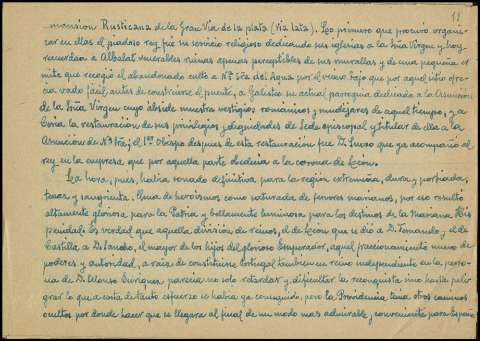 11
mansion Rusticana de la Gran Via de la plata (via lata). Lo primero que procuró organi-
zar en ellas el piadoso rey fué su servicio religioso dedicando sus iglesias a la Sta Virgen y hoy
recuerdan a Albalat venerables ruinas apenas perceptibles de sus murallas y de una pequeña er
mita que recogió el abandonado culto a Nª Sra del Agua por el vano bajo que por aquel sitio ofre-
cia vado fácil antes de construirse el puente, a Galisteo su actual parroquia dedicada a la Asunción
de la Sta Virgen cuyo ábside muestra vestigios románicos y mudéjares de aquel tiempo, y a
Coria la restauración de sus privilegios y dignidades de Sede episcopal y titular de ella a la
Asunción de Nª Sra; el 1er Obispo despues de esta restauración fue D. Suero que ya acompañó al
rey en la empresa que por aquella parte obedecia a la corona de León.
La hora, pues, habia sonado definitiva para la región extremeña, dura y porfiada,
tenaz y sangrienta. Plena de heroismos como saturada de fervores marianos, por eso resultó
altamente gloriosa para la Patria y bellamente luminosa para los destinos de la Mariana His
penidad. Es verdad que aquella división de reinos, el de León que se dió a D. Fernando y el de
Castilla a D. Sancho, el mayor de los hijos del glorioso Emperador, aquel fraccionamiento nuevo de
poderes y autoridad, a raiz de constituirse Portugal tambien en reino independiente en la perso-
na de D. Alonso Enriquez parecia no solo retardar y dificultar la reconquista sino hasta peli-
grar lo que a costa de tanto esfuerzo se habia ya conseguido, pero la Providencia tenia otros caminos
ocultos por donde hacer que se llegara al final de un modo mas admirable y conveniente para España